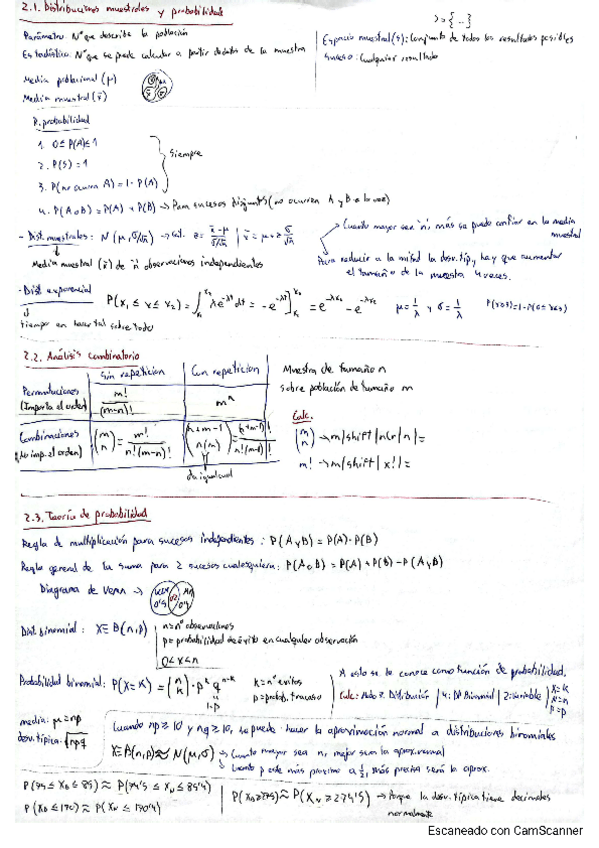 2.1. Distribuciones muestrales y probabilidad
s={...}
Parámetro: Nº que describe la población
Estadístico: Nº que se puede calcular a partir de datos de la muestra
Espacio muestral(s): Conjunto de todos los resultados posibles
suceso: Cualquier resultado
Media poblacional (μ)
Media muestral (x̄)
R. probabilidad
1. 0≤P(A)≤1
2. P(S)=1
3. P(no ocurra A)=1-P(A)
Siempre
4. P(AoB)=P(A)+P(B) → Para sucesos disjuntos (no ocurren A y B a la vez)
- Dist. muestrales: N(μ, σ/√n) → est. z = (x̄-μ)/(σ/√n) | x̄ = μ+z σ/√n
Media muestral (x̄) de n observaciones independientes
→ Cuanto mayor sea 'n', más se puede confiar en la media muestral
Para reducir a la mitad la desv. tip, hay que aumentar
el tamaño de la muestra 4 veces.
- Dist exponencial
P(x₁ ≤ x ≤ x₂) = ∫ λe^-λt dt = -e^-λt] = e^-λx₁ - e^-λx₂
μ=1/λ y σ=1/λ
tiempo en hacer tal sobre todo
2.2. Análisis combinatorio
Sin repeticion
Con repetición
Muestra de tamaño n
sobre población de tamaño m
Permutaciones
(Importa el orden)
m!/(m-n)!
mⁿ
Calc.
Combinaciones
(No imp. el orden)
(m n) = m!/n!(m-n)!
(n+m-1 n(m)) = (n+m-1)!/n!(m-1)!
da igual cual
(m n) → m|shift|nCr|n|=
m! → m|shift|x!|=
2.3. Teoría de probabilidad
Regla de multiplicación para sucesos independientes: P(AyB)=P(A)·P(B)
Regla general de la suma para 2 sucesos cualesquiera: P(AoB)=P(A)+P(B)-P(AyB)
Diagrama de Venn →
Dist. binomial: X∈B(n,p)
n=nº observaciones
p=probabilidad de éxito en cualquier observación
0<x<n
Probabilidad binomial: P(X=K)=(n k)·p^k q^n-k
1-p
K=nº éxitos
p=probab. fracaso
A esto se le conoce como función de probabilidad.
Calc: Modo 7. Distribución | 4: DP Binomial | 2: Variable | X=K N=n P=p
media: μ=np
desv. típica: √npq
Cuando np≥10 y nq≥10, se puede hacer la aproximación normal a distribuciones binomiales
X∈B(n,p)≈N(μ,σ) → Cuanto mayor sea n, mejor será la aprox. normal
→ Cuanto p esté más próximo a ½, más precisa será la aprox.
P(75≤X_B≤85)≈P(74'5≤X_N≤85'4)
P(X_B≤170)≈P(X_N≤170'4)
→ Porque la desv. típica tiene decimales
normalmente
Escaneado con CamScanner